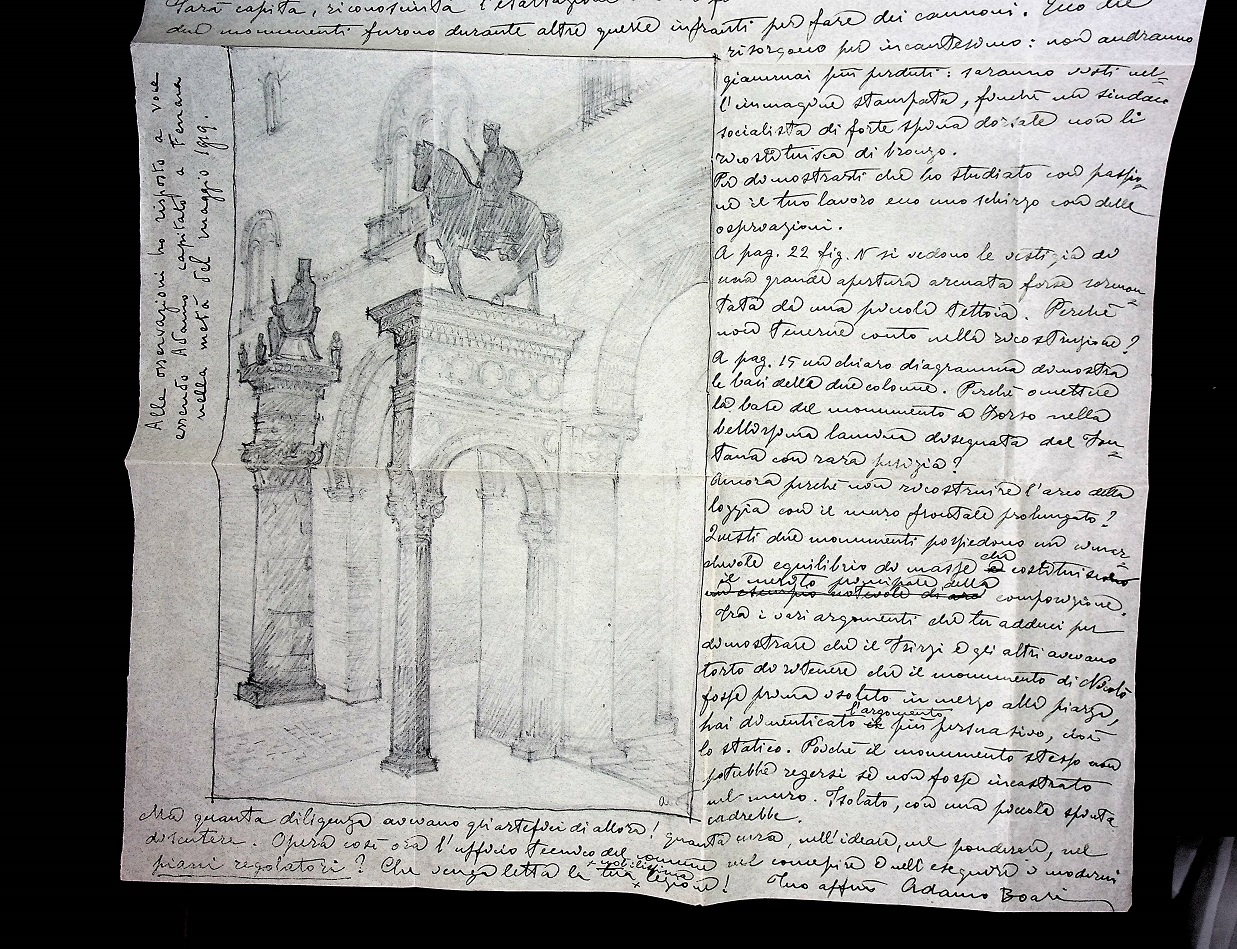 sarà capita, riconosciuta l'esaltazione
due monumenti furono durante altre guerre infranti per fare dei cannoni. Ecco che
risorgono per incantesimo: non andranno
giammai più perduti: saranno visti nel-
l'immagine stampata, finché un sindaco
socialista di forte spina dorsale non li
ricostituisca di bronzo.
Per dimostrarti che ho studiato con passio-
ne il tuo lavoro ecco uno schizzo con delle
osservazioni.
A pag. 22 fig. N si vedono le vestigia di
una grande apertura arcuata forse sormon-
tata da una piccola tettoia. Perchè
non tenerne conto nella ricostruzione?
A pag. 15 un chiaro diagramma dimostra
le basi delle due colonne. Perchè omettere
la base del monumento a Borso nella
bellissima lamina disegnata dal Fon-
tana con rara perizia?
Ancora perchè non ricostruire l'arco della
loggia con il muro frontale prolungato?
Questi due monumenti posseggono un consi-
derevole equilibrio di masse che costituiscono
il merito principale della
un esempio notevole di composizione.
Tra i vari argomenti che tu adduci per
dimostrare che il Frizzi e gli altri avevano
torto di ritenere che il monumento di Nicolò
fosse prima isolato in mezzo alla piazza,
hai dimenticato l'argomento più persuasivo, cioè
lo statico. Poichè il monumento stesso non
potrebbe regersi se non fosse incastrato
nel muro. Isolato, con una piccola spinta
cadrebbe.
Ma quanta diligenza avevano gli artefici di allora! quanta cura, nell'ideare, nel ponderare, nel
discutere. Opera così ora l'ufficio tecnico del comune nel concepire e nell'eseguire i moderni
piani regolatori? Che venga letta la tua nobilissima lezione! Tuo affmo Adamo Boari
Alle osservazioni ho risposto a voce
essendo Adamo capitato a Ferrara
nella metà del maggio 1919.